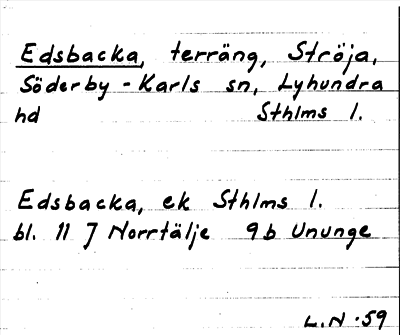 Edsbacka, terräng, Ströja,
Söderby - Karls sn, Lyhundra
hd Sthlms l.
Edsbacka, ek Sthlms l.
bl. 11 J Norrtälje 9b Ununge
L.N. 59